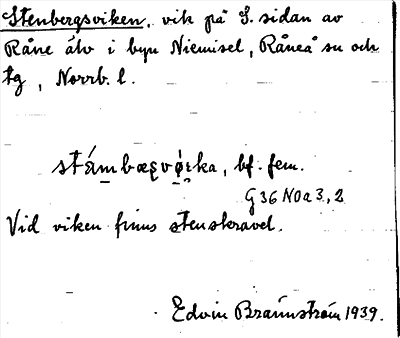 Stenbergsviken, vik på S. sidan av
Råne älv i byn Niemisel, Råneå sn och
tg, Norrb. l.
stám̲bæʂvǿɪka, bf. fem.
G 36 N0a 3, 2
Vid viken finns stenskravel.
Edvin Brännström 1939.